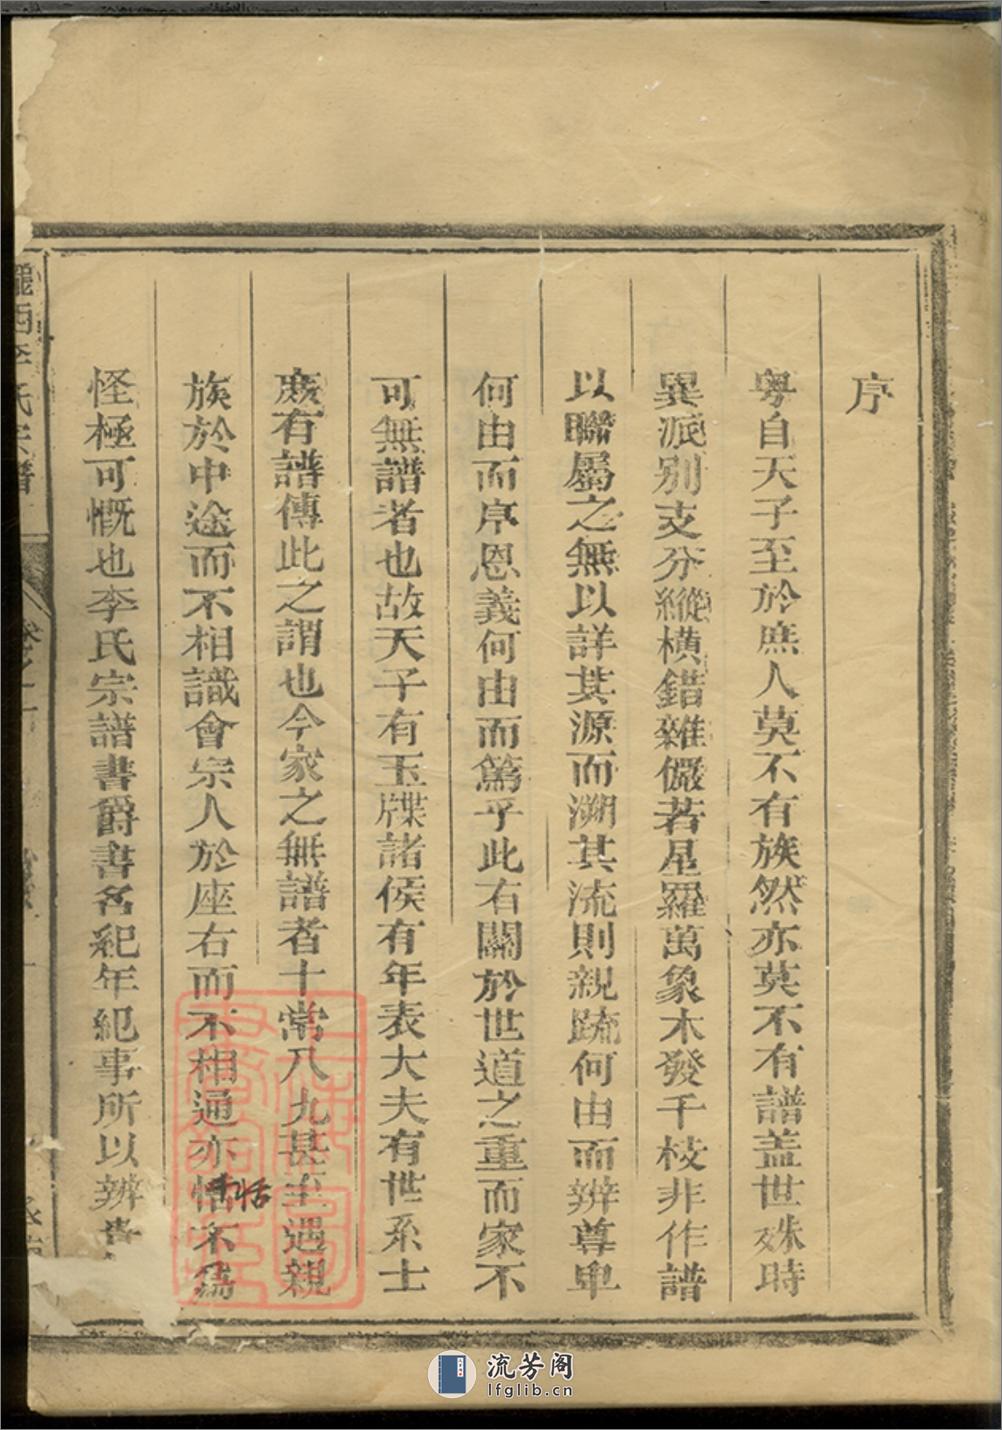 序
粵自天子至於庶人莫不有族然亦莫不有譜盖世殊時
異派别支分縱橫錯雜儼若星羅萬象木發千枝非作譜
以聯屬之無以詳其源而溯其流則親疏何由而辨尊卑
何由而序恩義何由而篤乎此有關於世道之重而家不
可無譜者也故天子有玉牒諸侯有年表大夫有世系士
庶有譜傳此之謂也今家之無譜者十常八九甚至遇親
族於中途而不相識會宗人於座右而不相通亦恬不爲
怪極可慨也李氏宗譜書爵書名紀年紀事所以辨貴
隴西李氏宗譜
卷之一
流芳阁
lfglib.cn